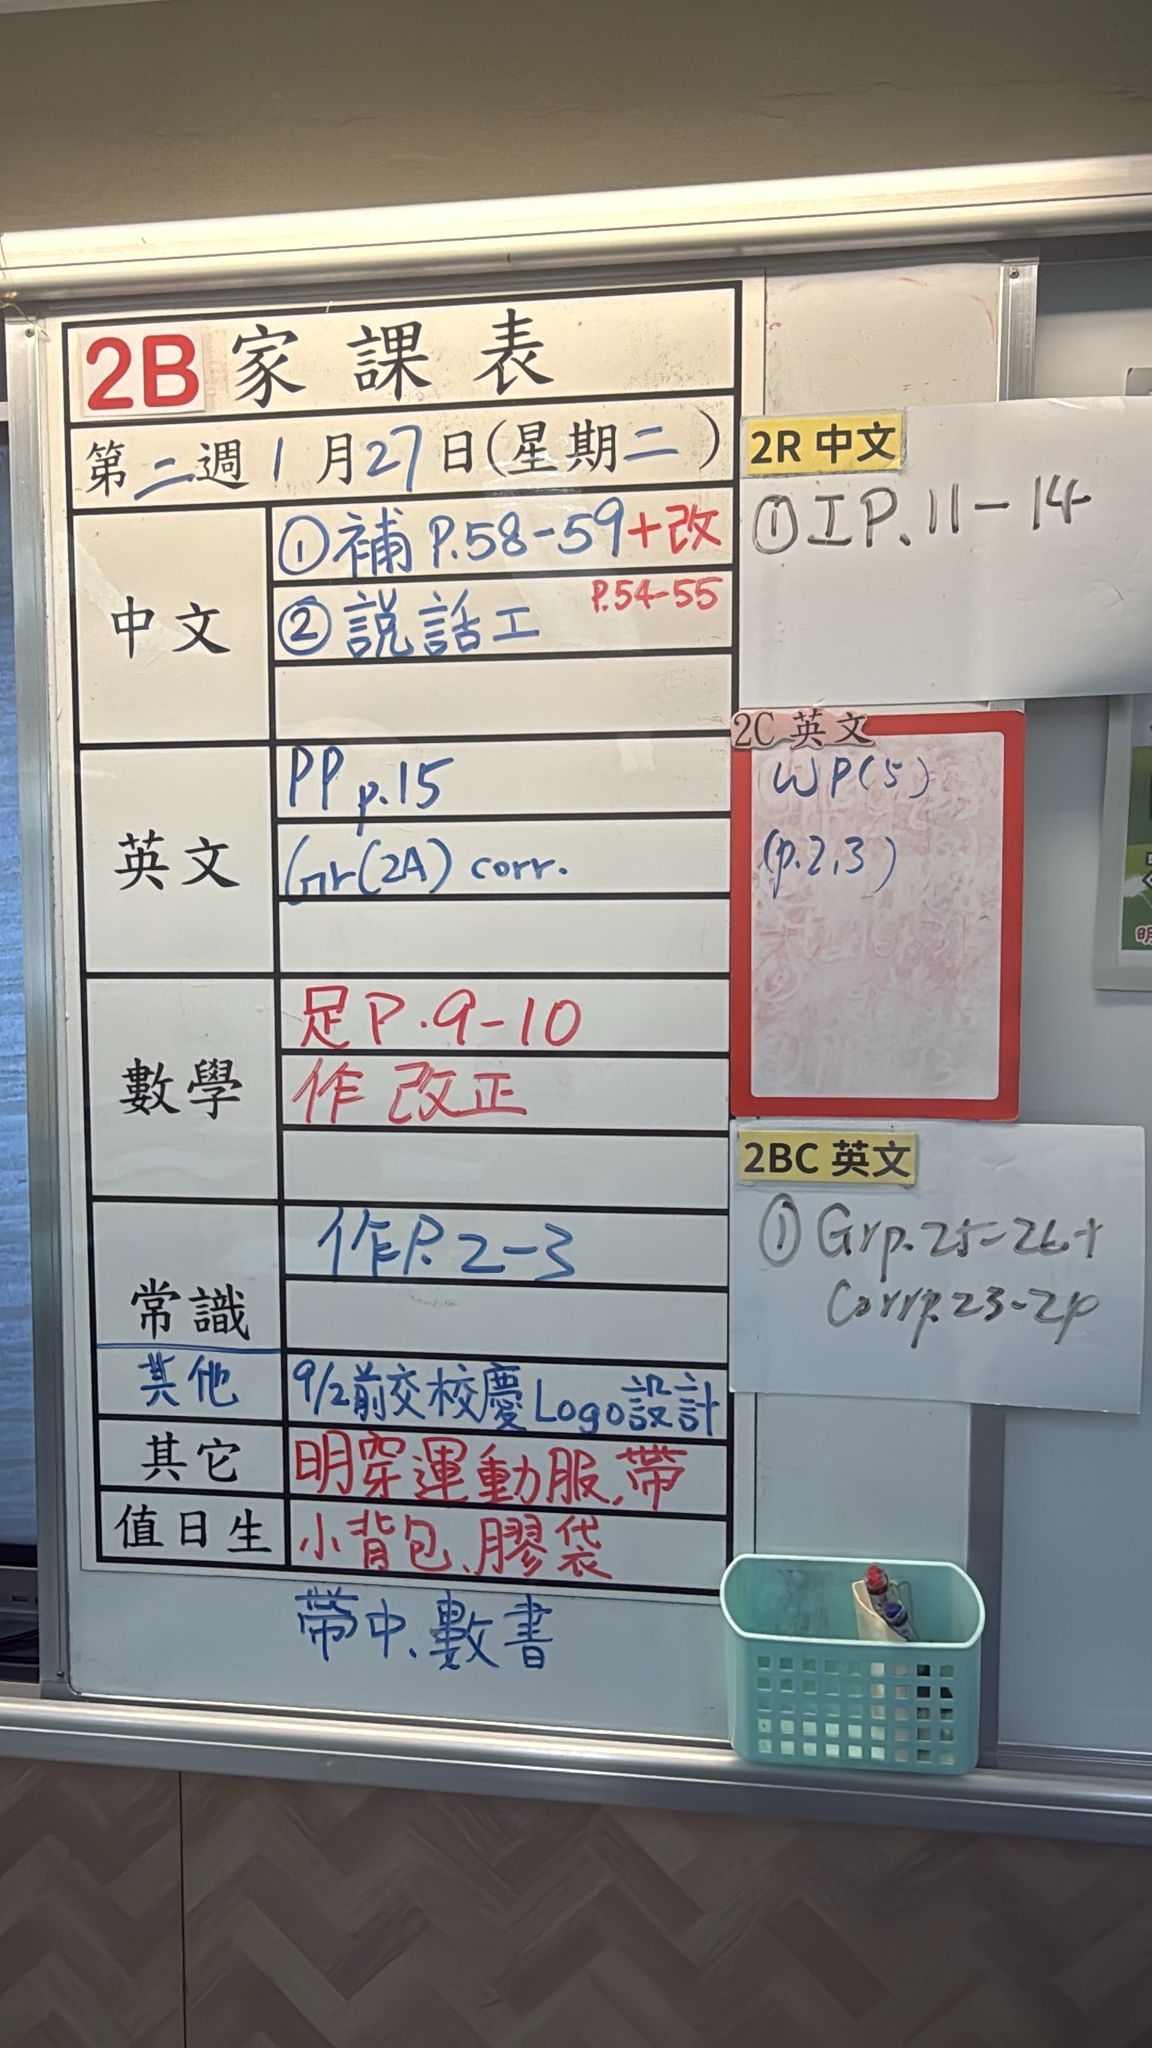 2B 家課表
第二週1月27日(星期二)
中文
①補 P.58-59+改
P.54-55
②説話工
英文
PP p.15
Gr(2A) corr.
數學
足P.9-10
作 改正
常識
作P.2-3
其他
9/2前交校慶Logo設計
其它
明穿運動服、帶
值日生
小背包、膠袋
帶中、數書
2R 中文
①工P.11-14
2C 英文
WP(5)
(p.2,3)
2BC 英文
①Gr p.25-26+
Corr p.23-24
明